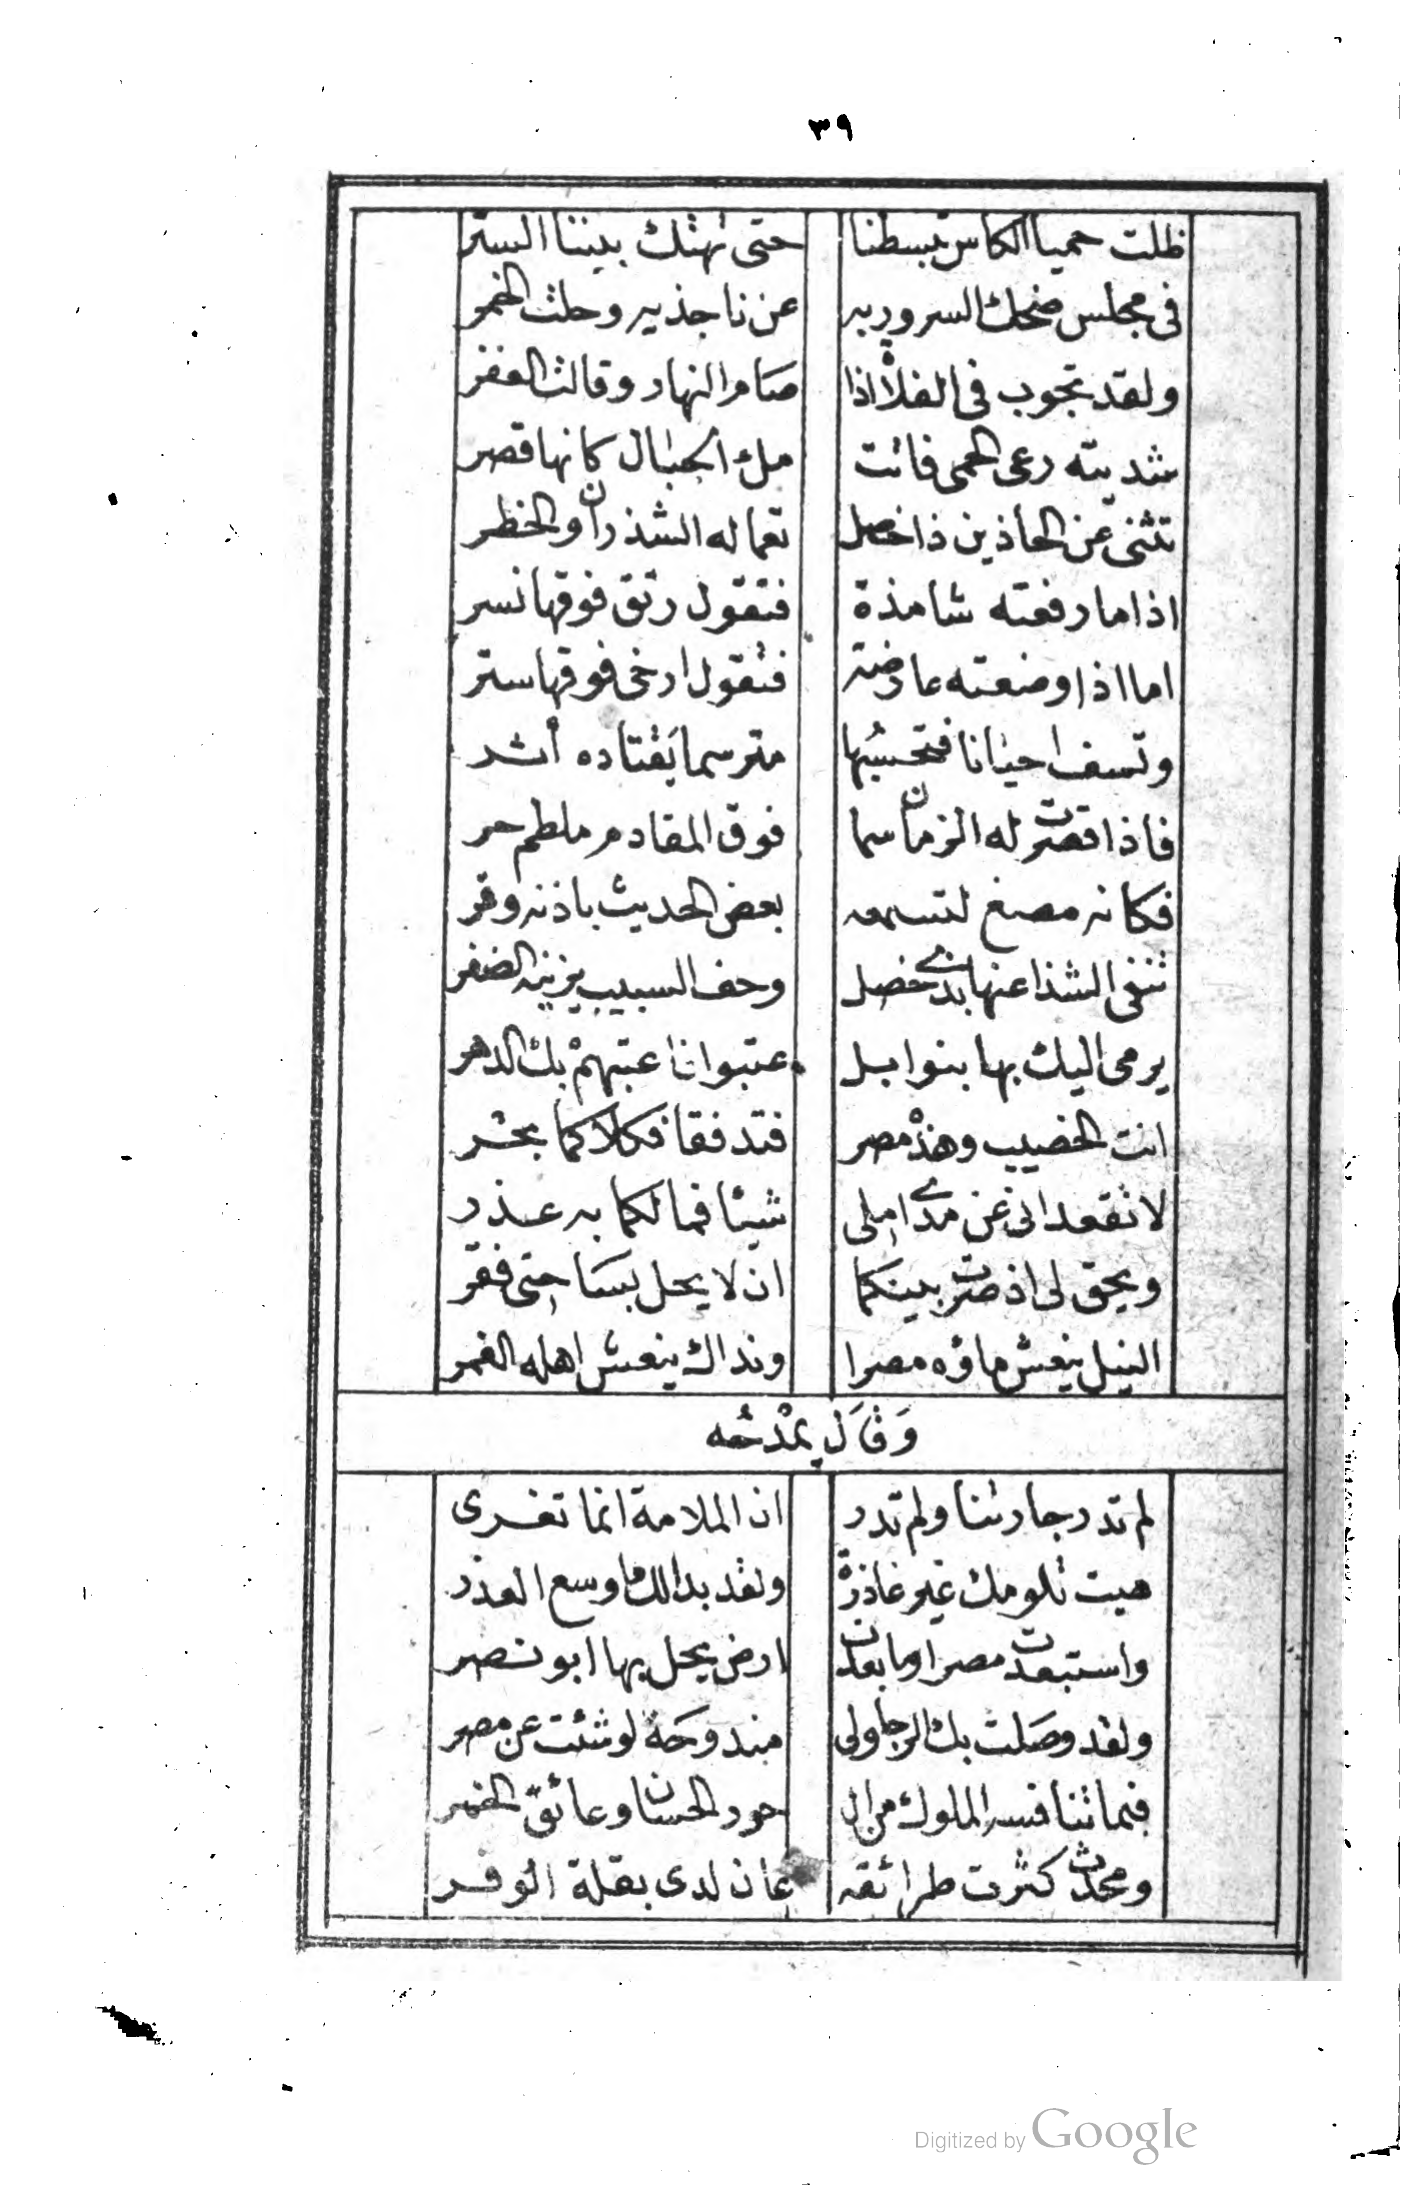 ٣٩
ظلت حميا الكاس تبسطنا حتى تهتك بيننا الستر
فى مجلس ضحك السرور به عن ناجذيه وحلت الخمر
ولقد تجوب فى الفلاة اذا صام النهار وقالت العفر
شدنيته رعى الحمى فاتت ملء الجبال كانها قصر
تثنى عن الحاذين ذا خصل تعماله الشذران والخطر
اذا ما رفعته شامذة فتقول رتق فوقها نسر
اما اذا وضعته عارضة فتقول ارخى فوقها ستر
وتسف احيانا فتحسبها مترسما يقتاده أثر
فاذا قصرت له الزمان سما فوق المقادم ملطم حر
فكانه مصغ لتسمعه بعض الحديث باذنه وقر
تنفى الشذا عنها بذى خصل وحف السبيب يزينه الضفر
يرمى اليك بها بنوا مل عتبوا فا عتبهم بك الدهر
انت الخصيب وهذه مصر فتدفقا فكلاكما بحر
لا تقعدا نى عن مدى املى شيئا فما لكما به عذر
ويحق لى اذ صرت بينكما ان لا يحل بسا حتى فقر
النيل ينعش ماؤه مصرا ونداك ينعش اهله الغمر
وَقَالَ يمْدحُه
لم تدر جارتنا ولم تدر ان الملامة انما تغرى
هبت تلومك غير عاذرة ولقد بدالك اوسع العذر
واستبعدت مصرا وما بعدت ارض يحل بها ابو نصر
ولقد وصلت بك الرجا ولى مندوحة لو شئت عن مصر
فيما تنا فسه الملوك من ال حور الحسان وعاتق الخمر
ومحدث كثرت طرائقه عان لدى بقلة الوفر
Digitized by Google